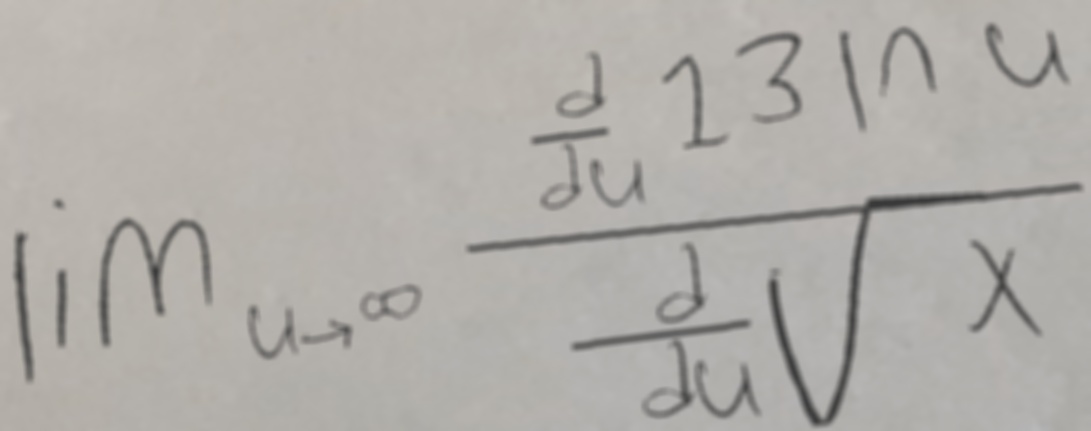 \lim_{u \to \infty} \frac{\frac{d}{du} 13 \ln u}{\frac{d}{du} \sqrt{x}}